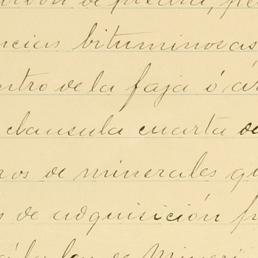 de piedra, pe
ncias bituminosas
entro de la faja ó ár
clausula cuarta de
ros de minerales qu
s de adquisición f